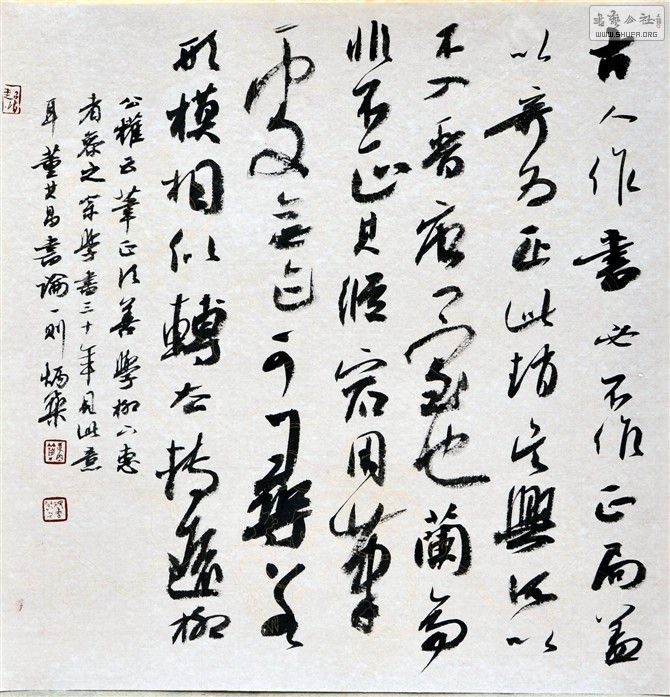 書藝公社
WWW.SHUFA.ORG
古人作書必不作正局蓋
以奇為正此趙吳興所以
不入晉唐門室也蘭亭
非不正其縱宕用筆
處無迹可尋若
形模相似轉去轉遠柳
公權云筆正須善學柳下惠
者參之余學書三十年見此意
耳董其昌書論一則炳